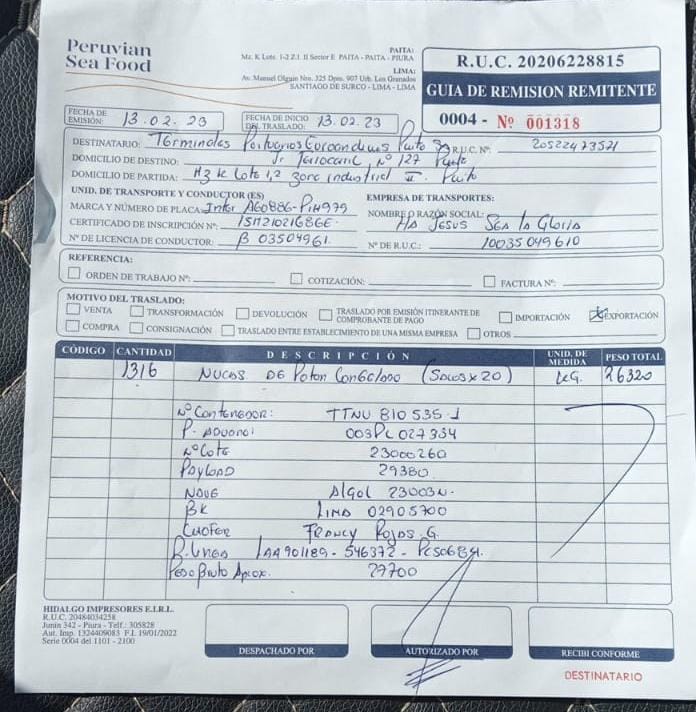 Peruvian
Sea Food
PAITA:
Mz. K Lote. 1-2 Z.I. II Sector E PAITA - PAITA - PIURA
LIMA:
Av. Manuel Olguin Nro. 325 Dpto. 907 Urb. Los Granados
SANTIAGO DE SURCO - LIMA - LIMA
R.U.C. 20206228815
GUIA DE REMISION REMITENTE
0004 - Nº 001318
FECHA DE EMISIÓN: 13.02.23
FECHA DE INICIO DEL TRASLADO: 13.02.23
DESTINATARIO: Términales Portuarios Euroandinos Paita SA R.U.C. Nº: 20522473571
DOMICILIO DE DESTINO: Jr Ferrocaril Nº 127 Paita
DOMICILIO DE PARTIDA: Mz k Lote 1,2 zona industrial II. Paita
UNID. DE TRANSPORTE Y CONDUCTOR (ES)
MARCA Y NÚMERO DE PLACA: Inter A60886-P1H979
CERTIFICADO DE INSCRIPCIÓN Nº: 15M21021686E
Nº DE LICENCIA DE CONDUCTOR: B 03504961
EMPRESA DE TRANSPORTES:
NOMBRE O RAZÓN SOCIAL: JESUS SEA la Gloria
Nº DE R.U.C.: 10035049610
REFERENCIA:
ORDEN DE TRABAJO Nº: COTIZACIÓN: FACTURA Nº:
MOTIVO DEL TRASLADO:
VENTA TRANSFORMACIÓN DEVOLUCIÓN TRASLADO POR EMISIÓN ITINERANTE DE COMPROBANTE DE PAGO IMPORTACIÓN EXPORTACIÓN
COMPRA CONSIGNACIÓN TRASLADO ENTRE ESTABLECIMIENTO DE UNA MISMA EMPRESA OTROS
CÓDIGO CANTIDAD DESCRIPCIÓN UNID. DE MEDIDA PESO TOTAL
1316 Nucas DE Poton Congelado (Sacos x 20) KG. 26320
Nº Contenedor: TTNU 810 535-1
P. ADUANA: 003PL027334
Nº Lote 23000260
PayLoad 29380
NAVE Algol 23003N.
BK LIMA 02905700
CHOFER FRANCY Rojas G.
P. Linea LAA901189 - 546372 -
Peso Bruto Aprox. 27700
HIDALGO IMPRESORES E.I.R.L.
R.U.C. 20484034258
Junin 342 - Piura - Telf.: 305828
Aut. Imp. 1324409083 F.I. 19/01/2022
Serie 0004 del 1101 - 2100
DESPACHADO POR
AUTORIZADO POR
RECIBI CONFORME
DESTINATARIO